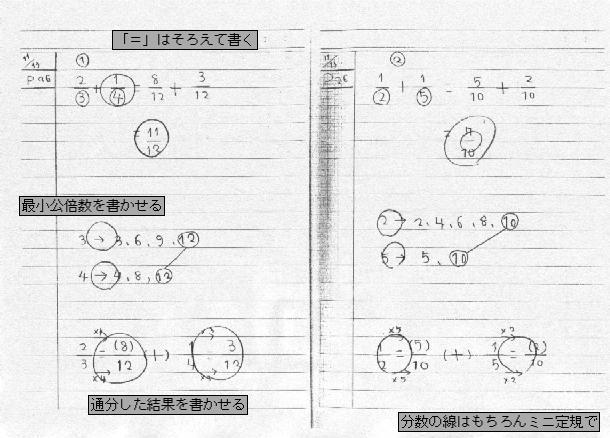 「＝」はそろえて書く
11/13 ①
P96 2/3 + 1/4 = 8/12 + 3/12
= 11/12
最小公倍数を書かせる
3 → 3, 6, 9, 12
4 → 4, 8, 12
×4 ×3
2/3 = (8)/12 (+) 1/4 = 3/12
×4 ×3
通分した結果を書かせる
②
P96 1/2 + 1/5 = 5/10 + 2/10
= 7/10
2 → 2, 4, 6, 8, 10
5 → 5, 10
×5 ×2
1/2 = (5)/10 (+) 1/5 = (2)/10
×5 ×2
分数の線はもちろんミニ定規で